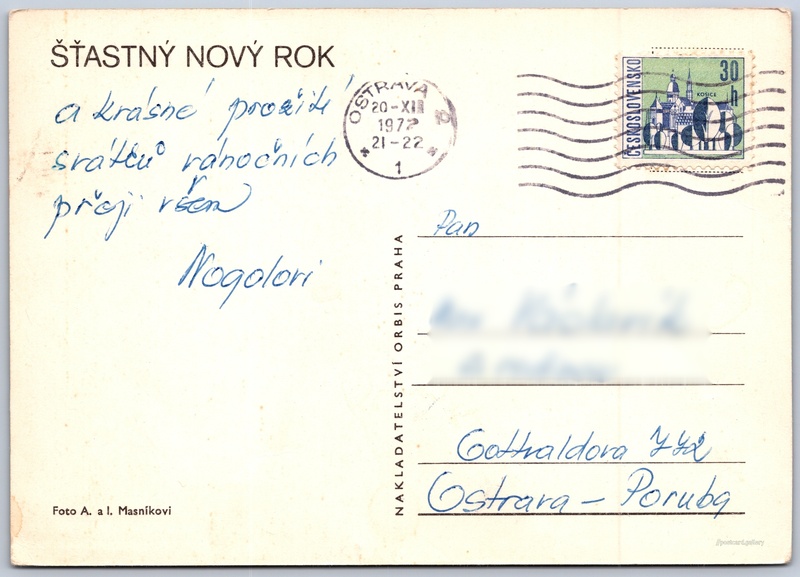 ŠŤASTNÝ NOVÝ ROK
a krásné prožití
svátků vánočních
přejí všem
Nogolovi
Foto A. a I. Masníkovi
NAKLADATELSTVÍ ORBIS PRAHA
OSTRAVA 2
20-XII
1972
21-22
1
ČESKOSLOVENSKO
30
h
KOŠICE
Pan
Gottvaldova
Ostrava - Poruba